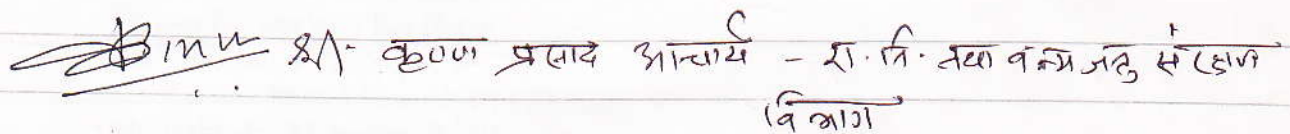 श्री कृष्ण प्रसाद आचार्य - रा. नि. तथा वन्यजन्तु संरक्षण
विभाग